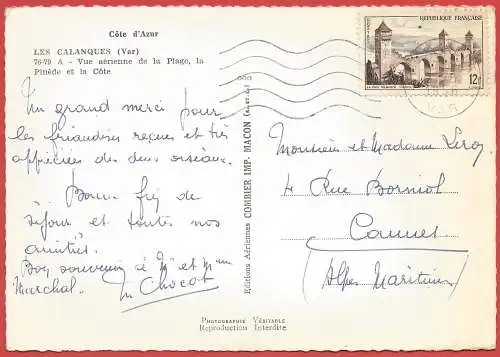 Côte d'Azur
LES CALANQUES (Var)
76-79 A - Vue aérienne de la Plage, la
Pinède et la Côte
Un grand merci pour
les friandises reçues et très
appréciées des deux oiseaux.
Bonne fin de
séjour et toutes nos
amitiés.
Bon souvenir à Mr et Mme
Marchal.
Editions Aériennes COMBIER IMP. MACON (S.-et-L.)
REPUBLIQUE FRANÇAISE
12f
VAR
Monsieur et Madame Leroy
4 Rue
Cannes
(Alpes Maritimes)
PHOTOGRAPHIE VÉRITABLE
Reproduction Interdite